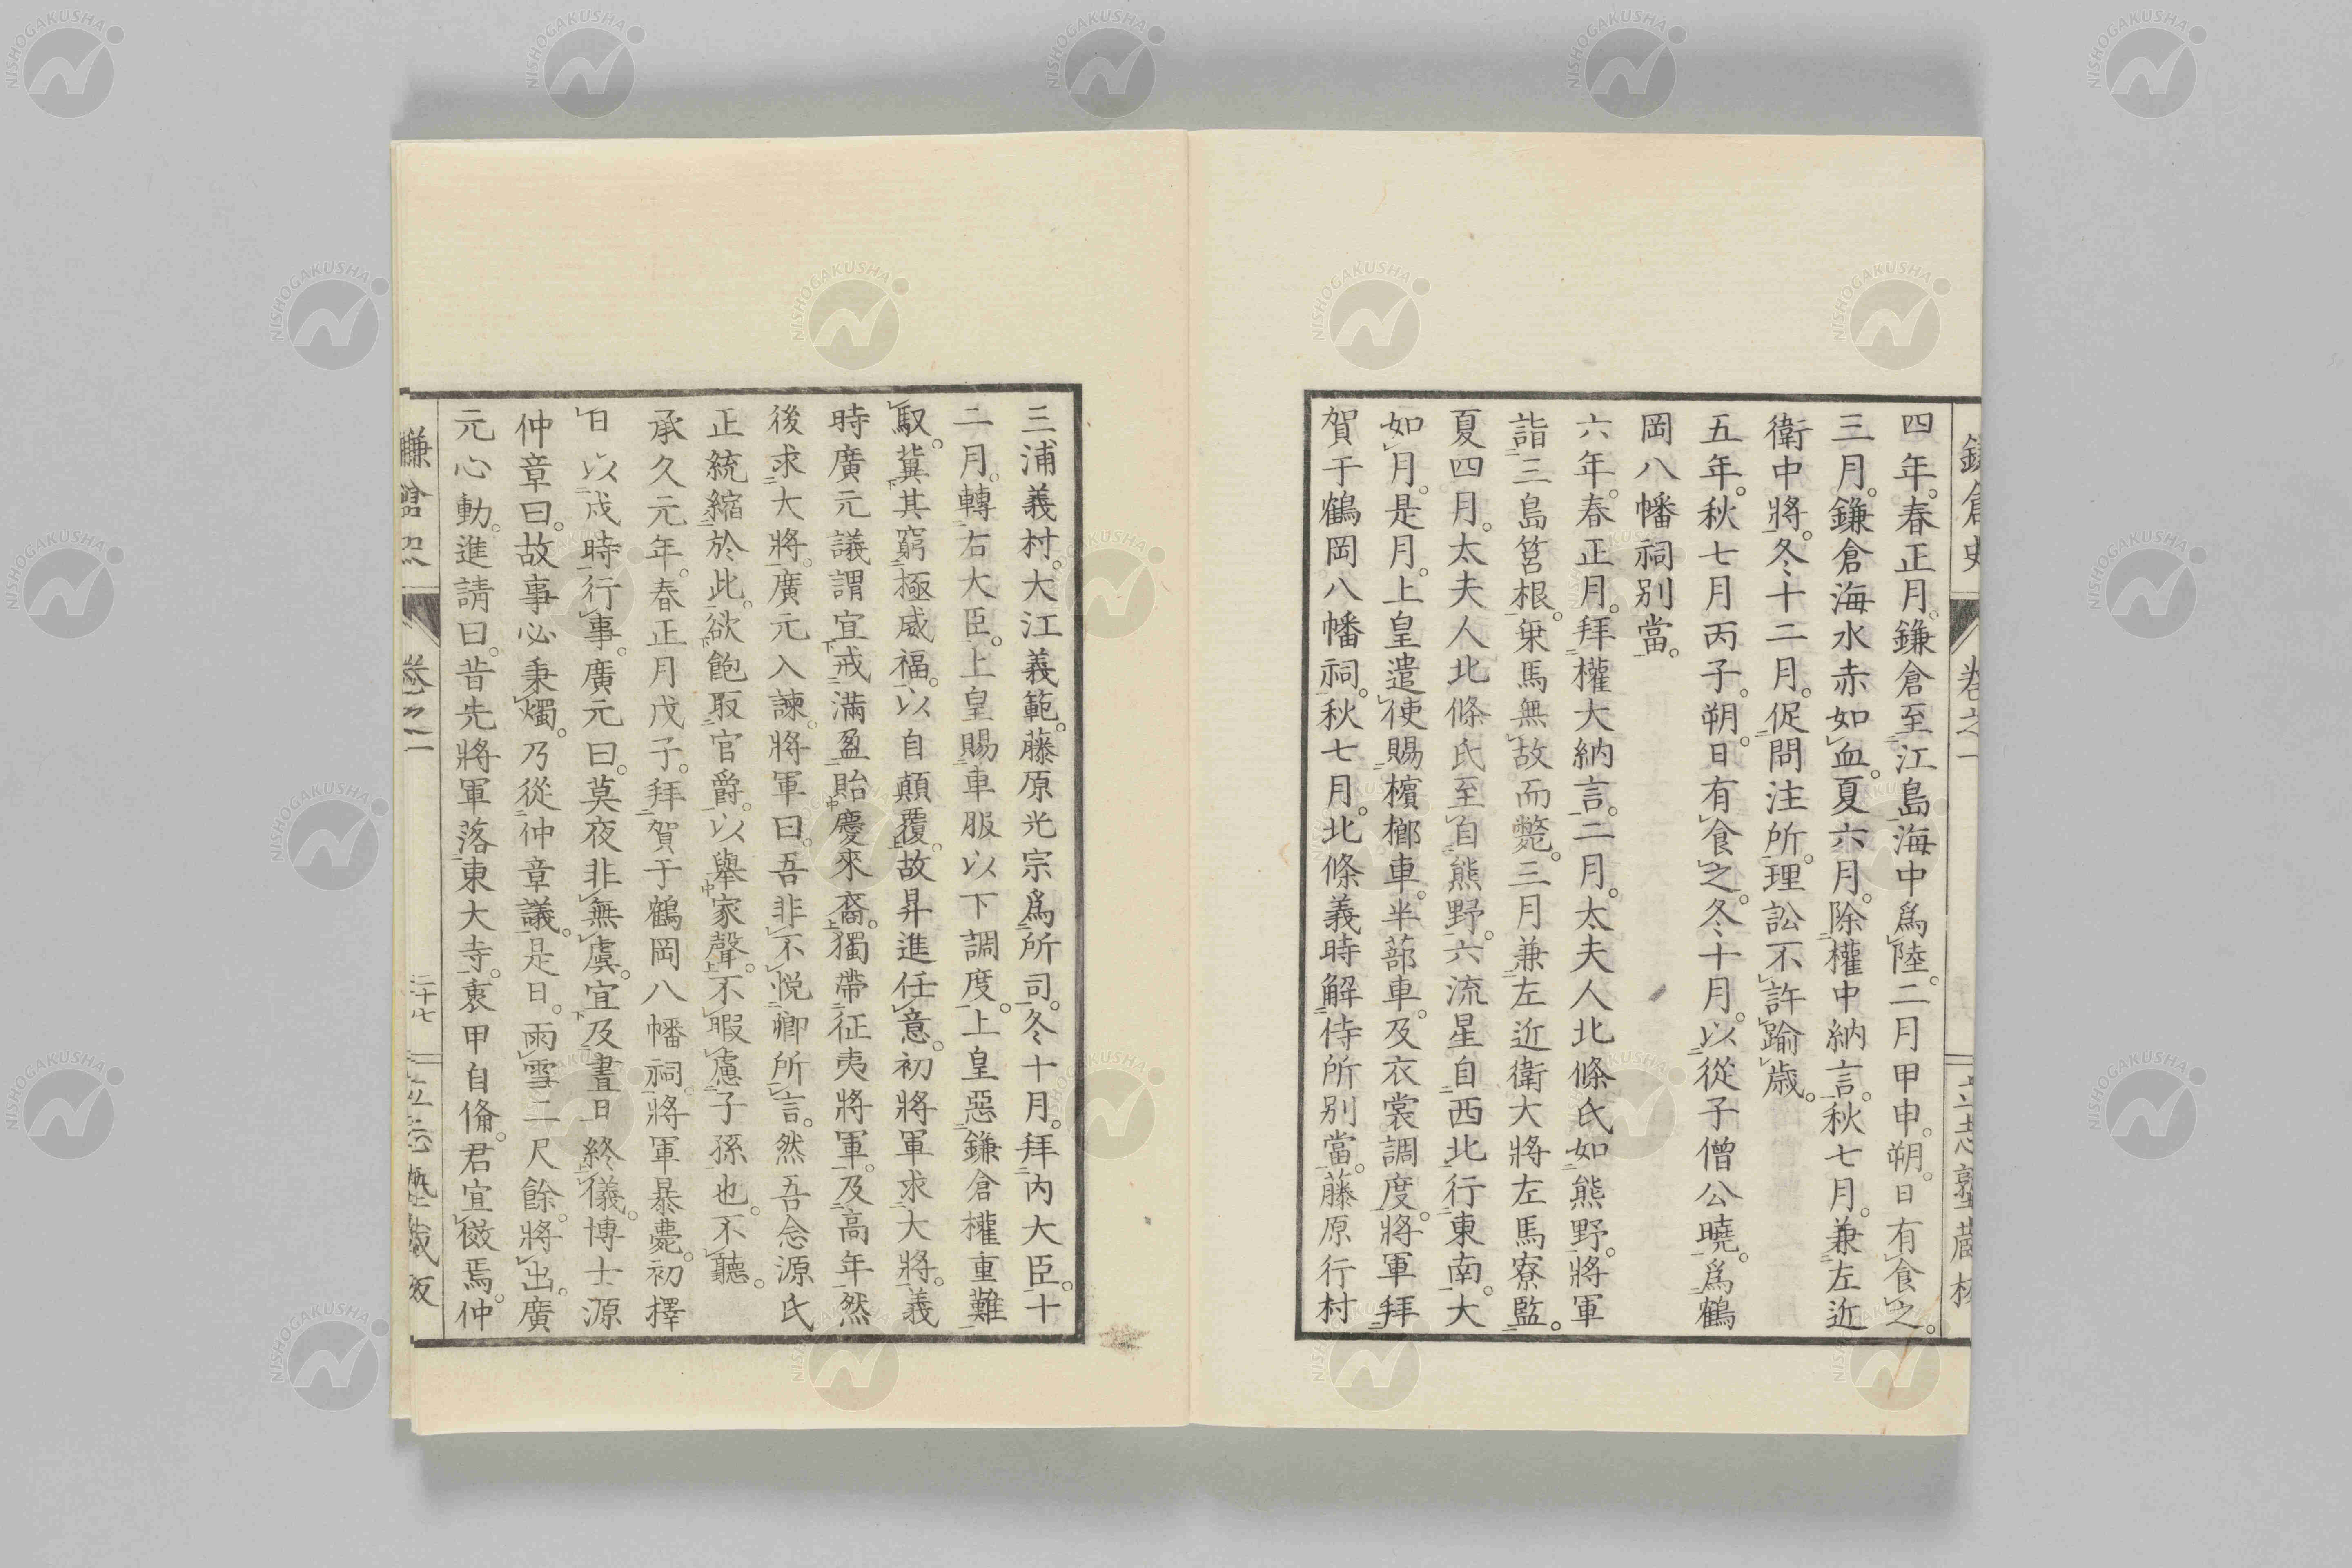 四年。春正月。鎌倉至江島海中爲陸。二月甲申。朔。日有食之。
三月。鎌倉海水赤如血。夏六月。除權中納言。秋七月。兼左近
衛中將。冬十二月。促問注所。理訟不許踰歳。
五年。秋七月丙子。朔。日有食之。冬十月。以從子僧公曉。爲鶴
岡八幡祠別當。
六年。春正月。拜權大納言。二月。太夫人北條氏如熊野。將軍
詣三島筥根。椉馬無故而斃。三月兼左近衛大將左馬寮監。
夏四月。太夫人北條氏至自熊野。六流星自西北行東南。大
如月。是月。上皇遣使賜檳榔車。半蔀車。及衣裳調度。將軍拜
賀于鶴岡八幡祠。秋七月。北條義時解侍所別當。藤原行村
三浦義村。大江義範。藤原光宗爲所司。冬十月。拜内大臣。十
二月。轉右大臣。上皇賜車服以下調度。上皇惡鎌倉權重難
馭。冀其窮極威福。以自顛覆。故昇進任意。初將軍求大將。義
時廣元議謂宜戒滿盈貽慶來裔。獨帶征夷將軍。及高年然
後求大將。廣元入諫。將軍曰。吾非不悦卿所言。然吾念源氏
正統縮於此。欲飽取官爵。以舉家聲。不暇慮子孫也。不聽。
承久元年。春正月戊子。拜賀于鶴岡八幡祠。將軍暴薨。初擇
日以戌時行事。廣元曰。莫夜非無虞。宜及晝日終儀。博士源
仲章曰。故事必秉燭。乃從仲章議。是日。雨雪二尺餘。將出。廣
元心動。進請曰。昔先將軍落東大寺。衷甲自備。君宜傚焉。仲
鎌倉史
卷之一
二十七